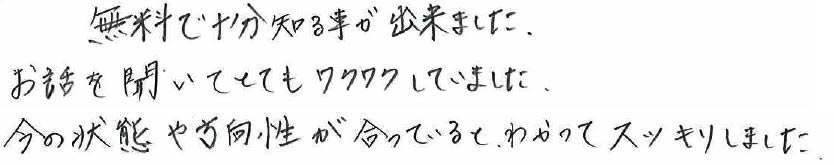 無料で十分知る事が出来ました.
お話を聞いてとてもワクワクしていました.
今の状態や方向性が合っていると.わかってスッキリしました.